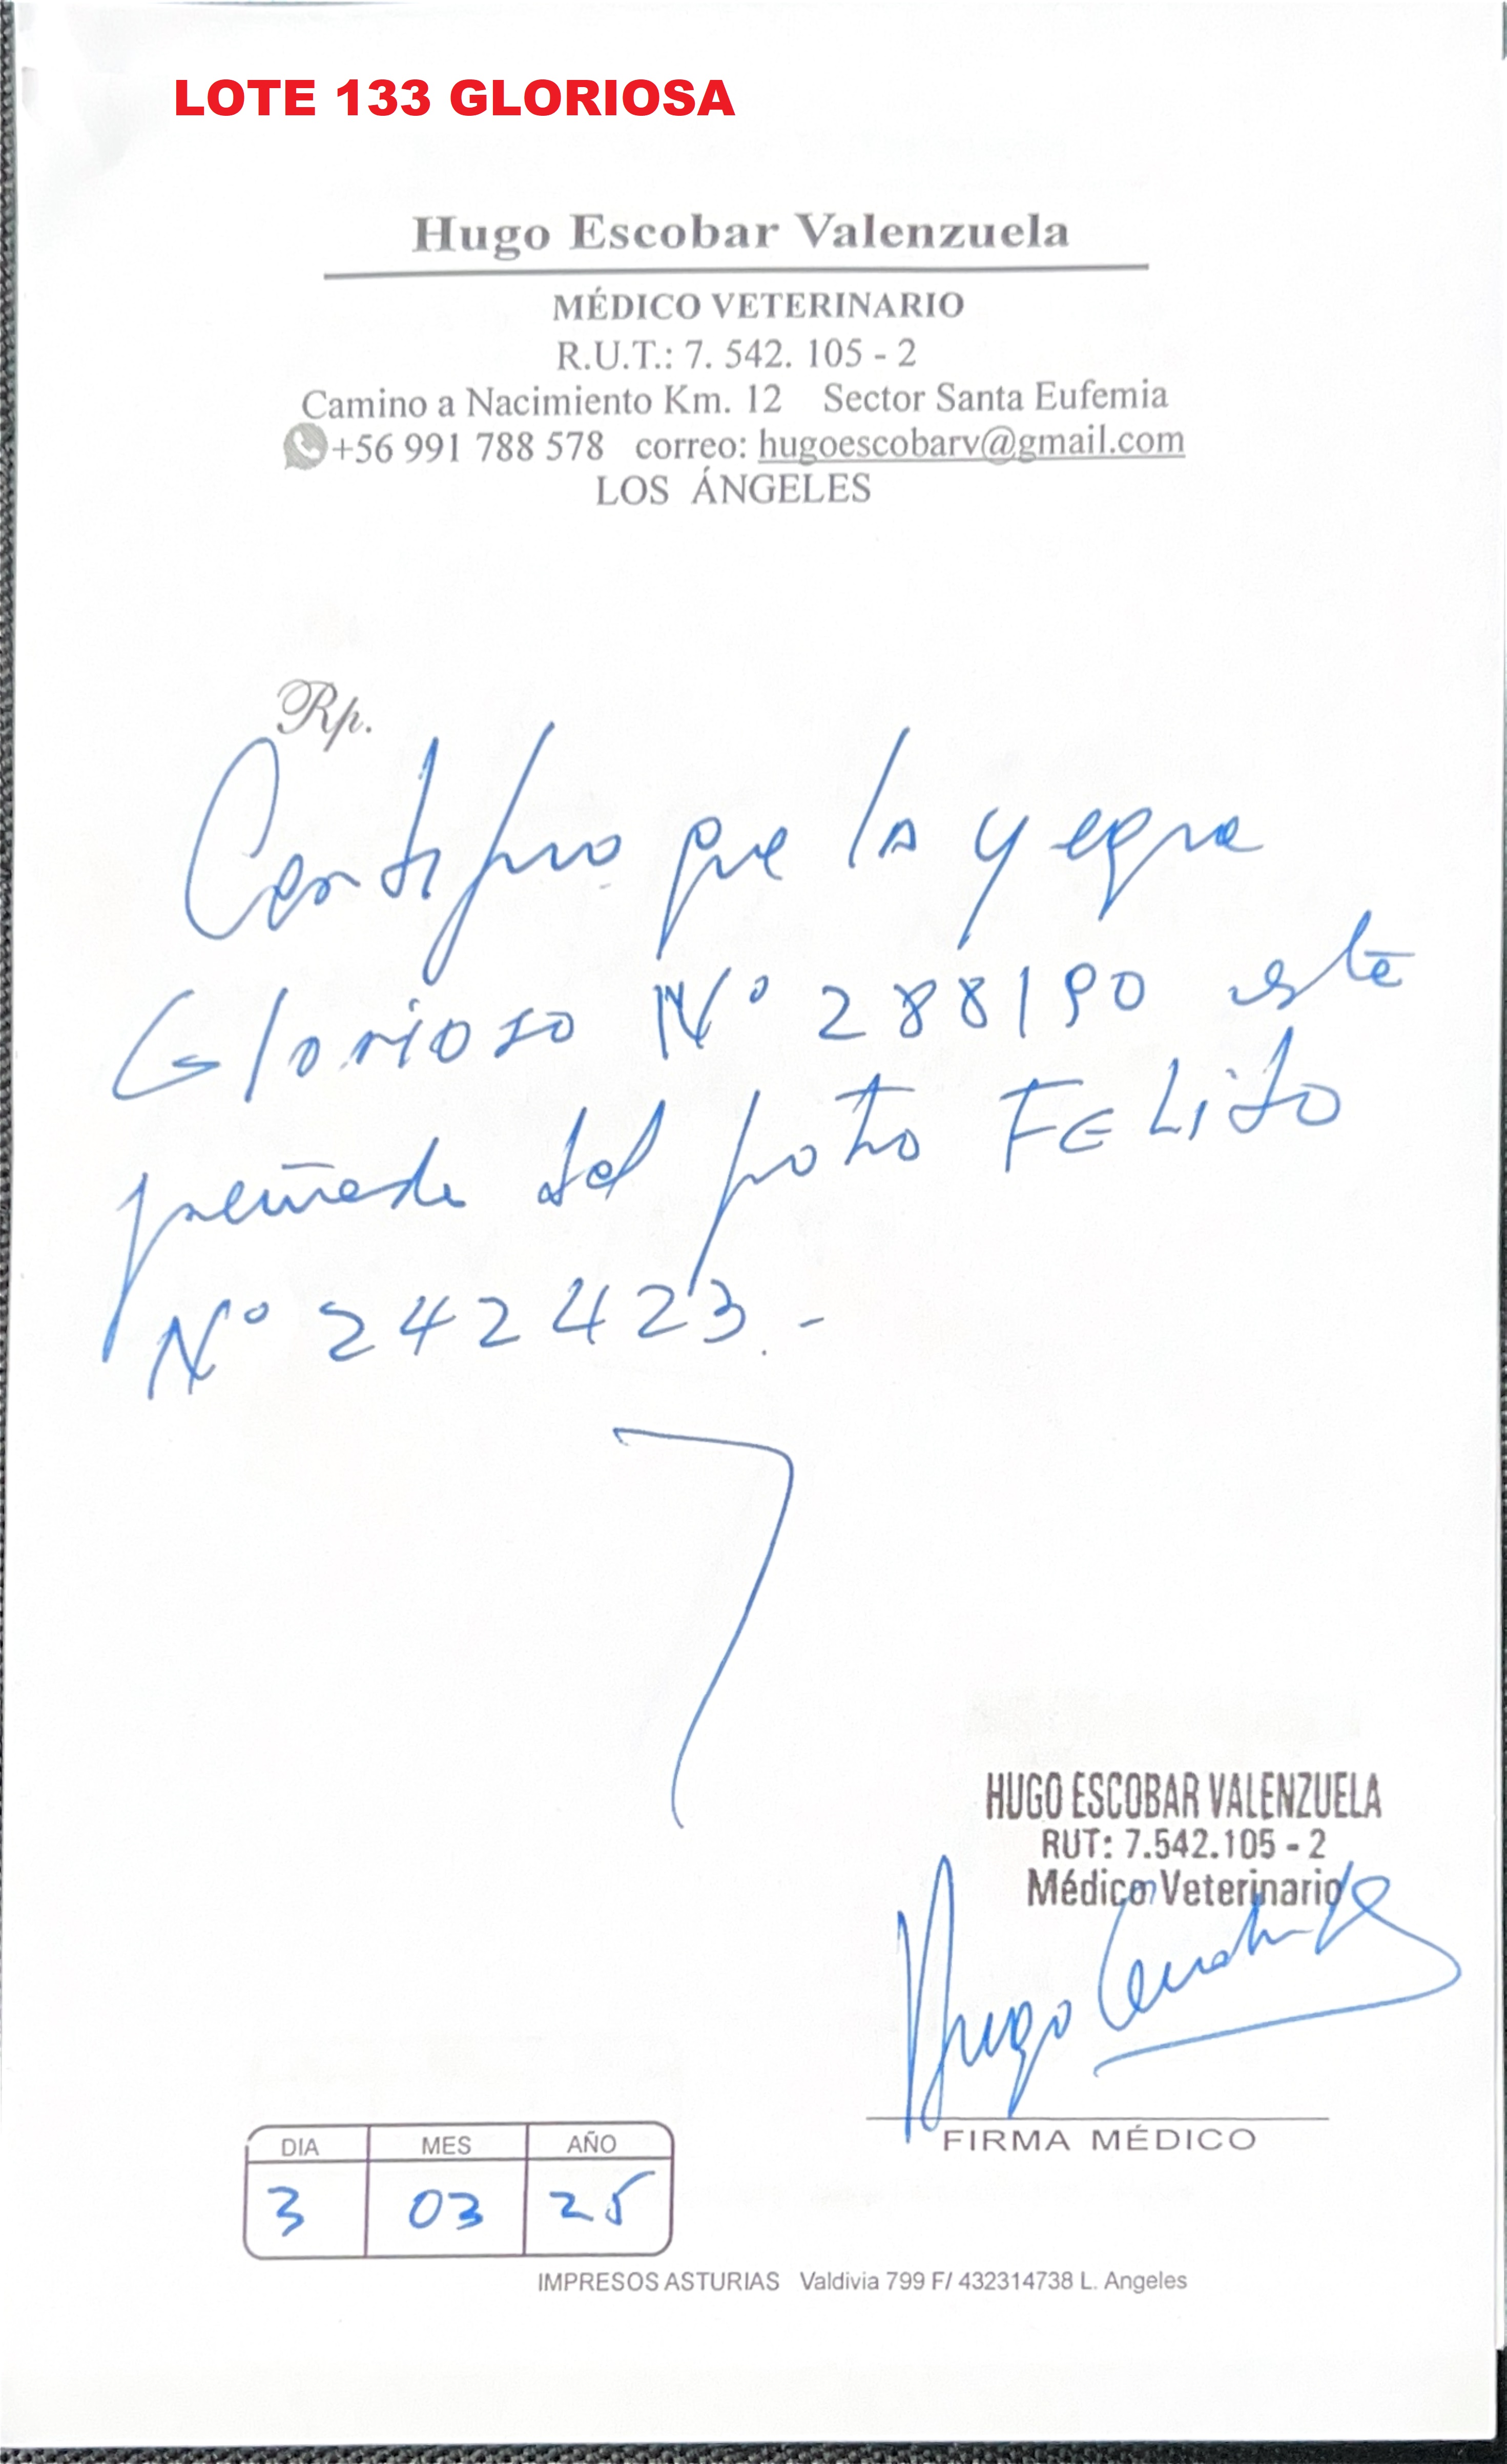 LOTE 133 GLORIOSA
Hugo Escobar Valenzuela
MÉDICO VETERINARIO
R.U.T.: 7. 542. 105 - 2
Camino a Nacimiento Km. 12 Sector Santa Eufemia
+56 991 788 578 correo: hugoescobarv@gmail.com
LOS ÁNGELES
Rp.
Certifico que la yegua
Gloriosa N° 288190 está
preñada del potro FELiTO
N° 242423.-
HUGO ESCOBAR VALENZUELA
RUT: 7.542.105 - 2
Médico Veterinario
FIRMA MÉDICO
DIA MES AÑO
3 03 25
IMPRESOS ASTURIAS Valdivia 799 F/ 432314738 L. Angeles